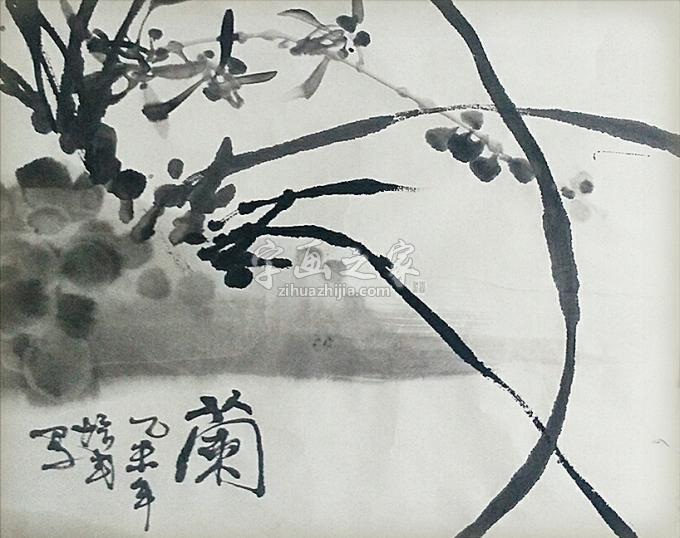 蘭
乙未年
写
字画之家
zihuazhijia.com